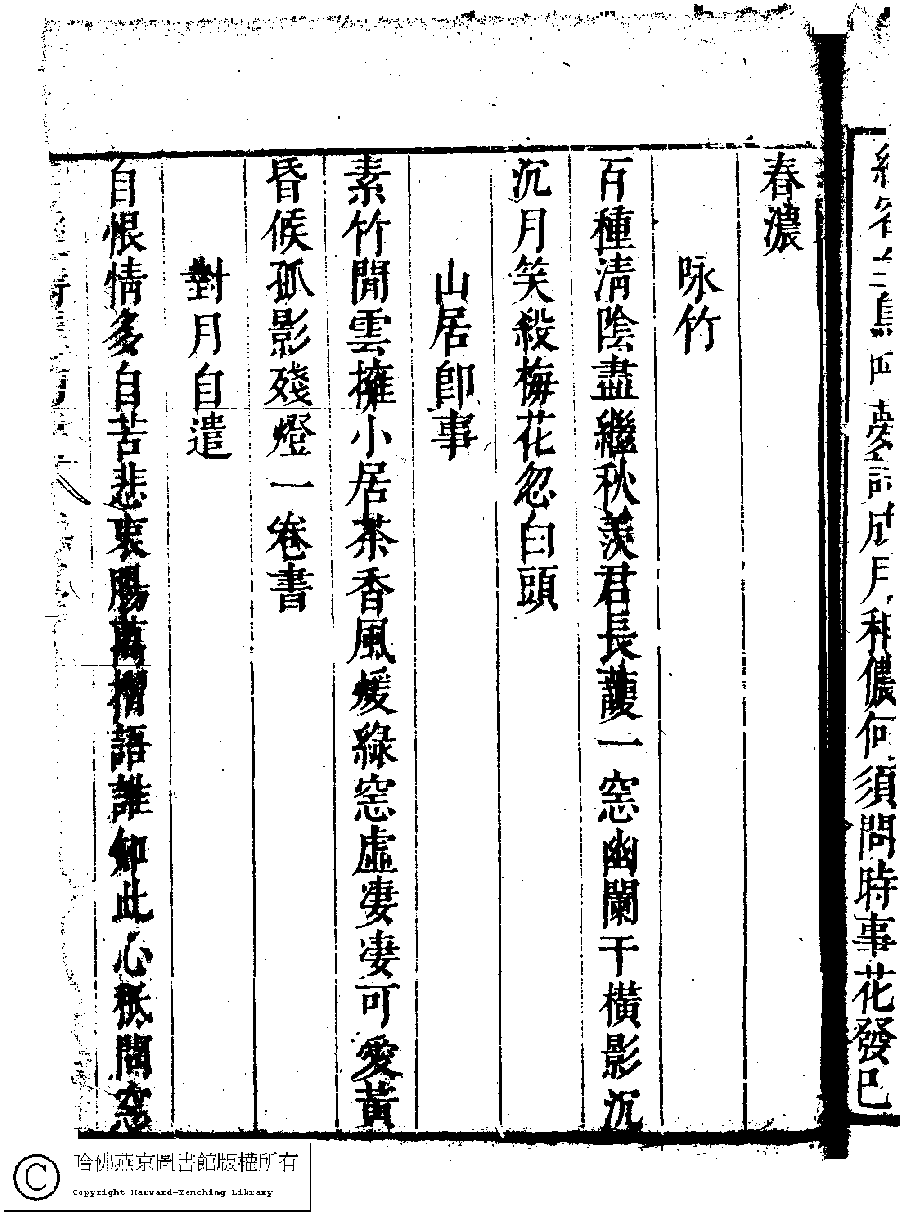 何須問時事花發已
春濃
咏竹
百種清陰盡繼秋羨君長護一窓幽闌干橫影沉
沉月笑殺梅花忽白頭
山居卽事
素竹閒雲擁小居茶香風煖綠窓虛凄凄可愛黃
昏候孤影殘燈一卷書
對月自遣
自恨情多自苦悲衷腸萬種語誰知此心秪問窓
哈佛燕京圖書館版權所有
Copyright Harvard-Yenching Library